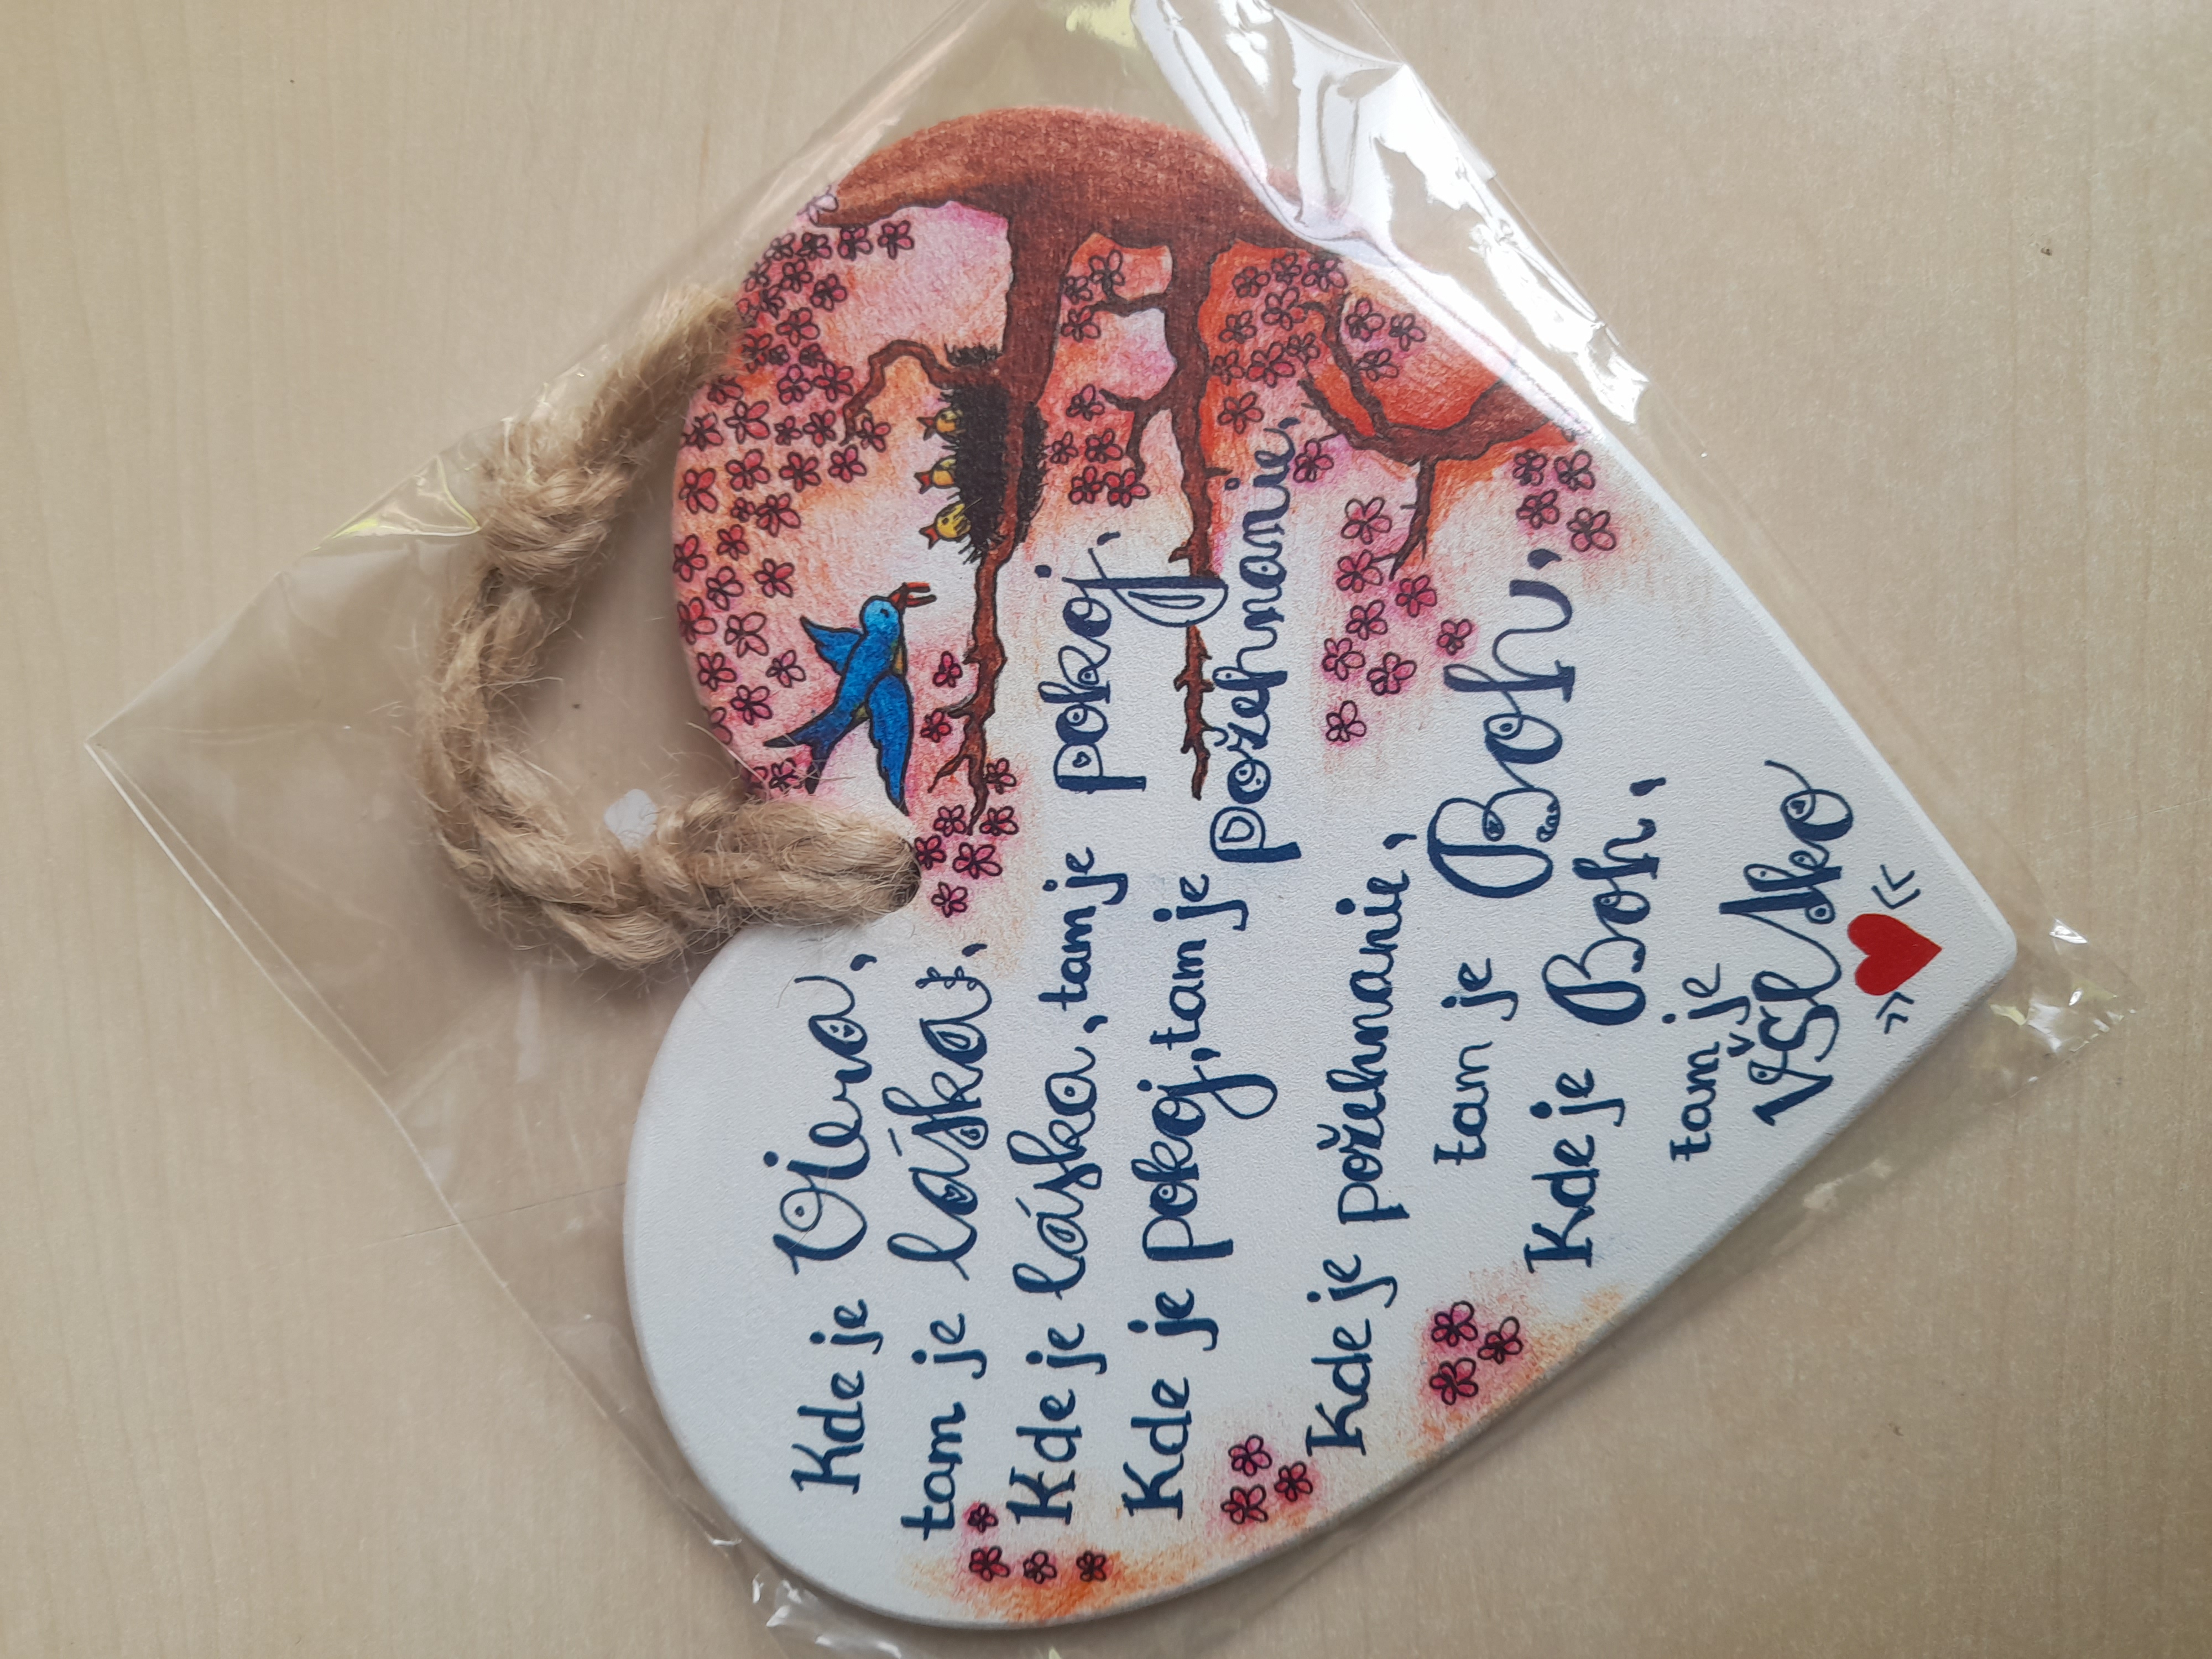 Kde je Viera,
tam je láska,
Kde je láska, tam je pokoj,
Kde je pokoj, tam je požehnanie,
Kde je požehnanie,
tam je Boh,
Kde je Boh,
tam je
všetko